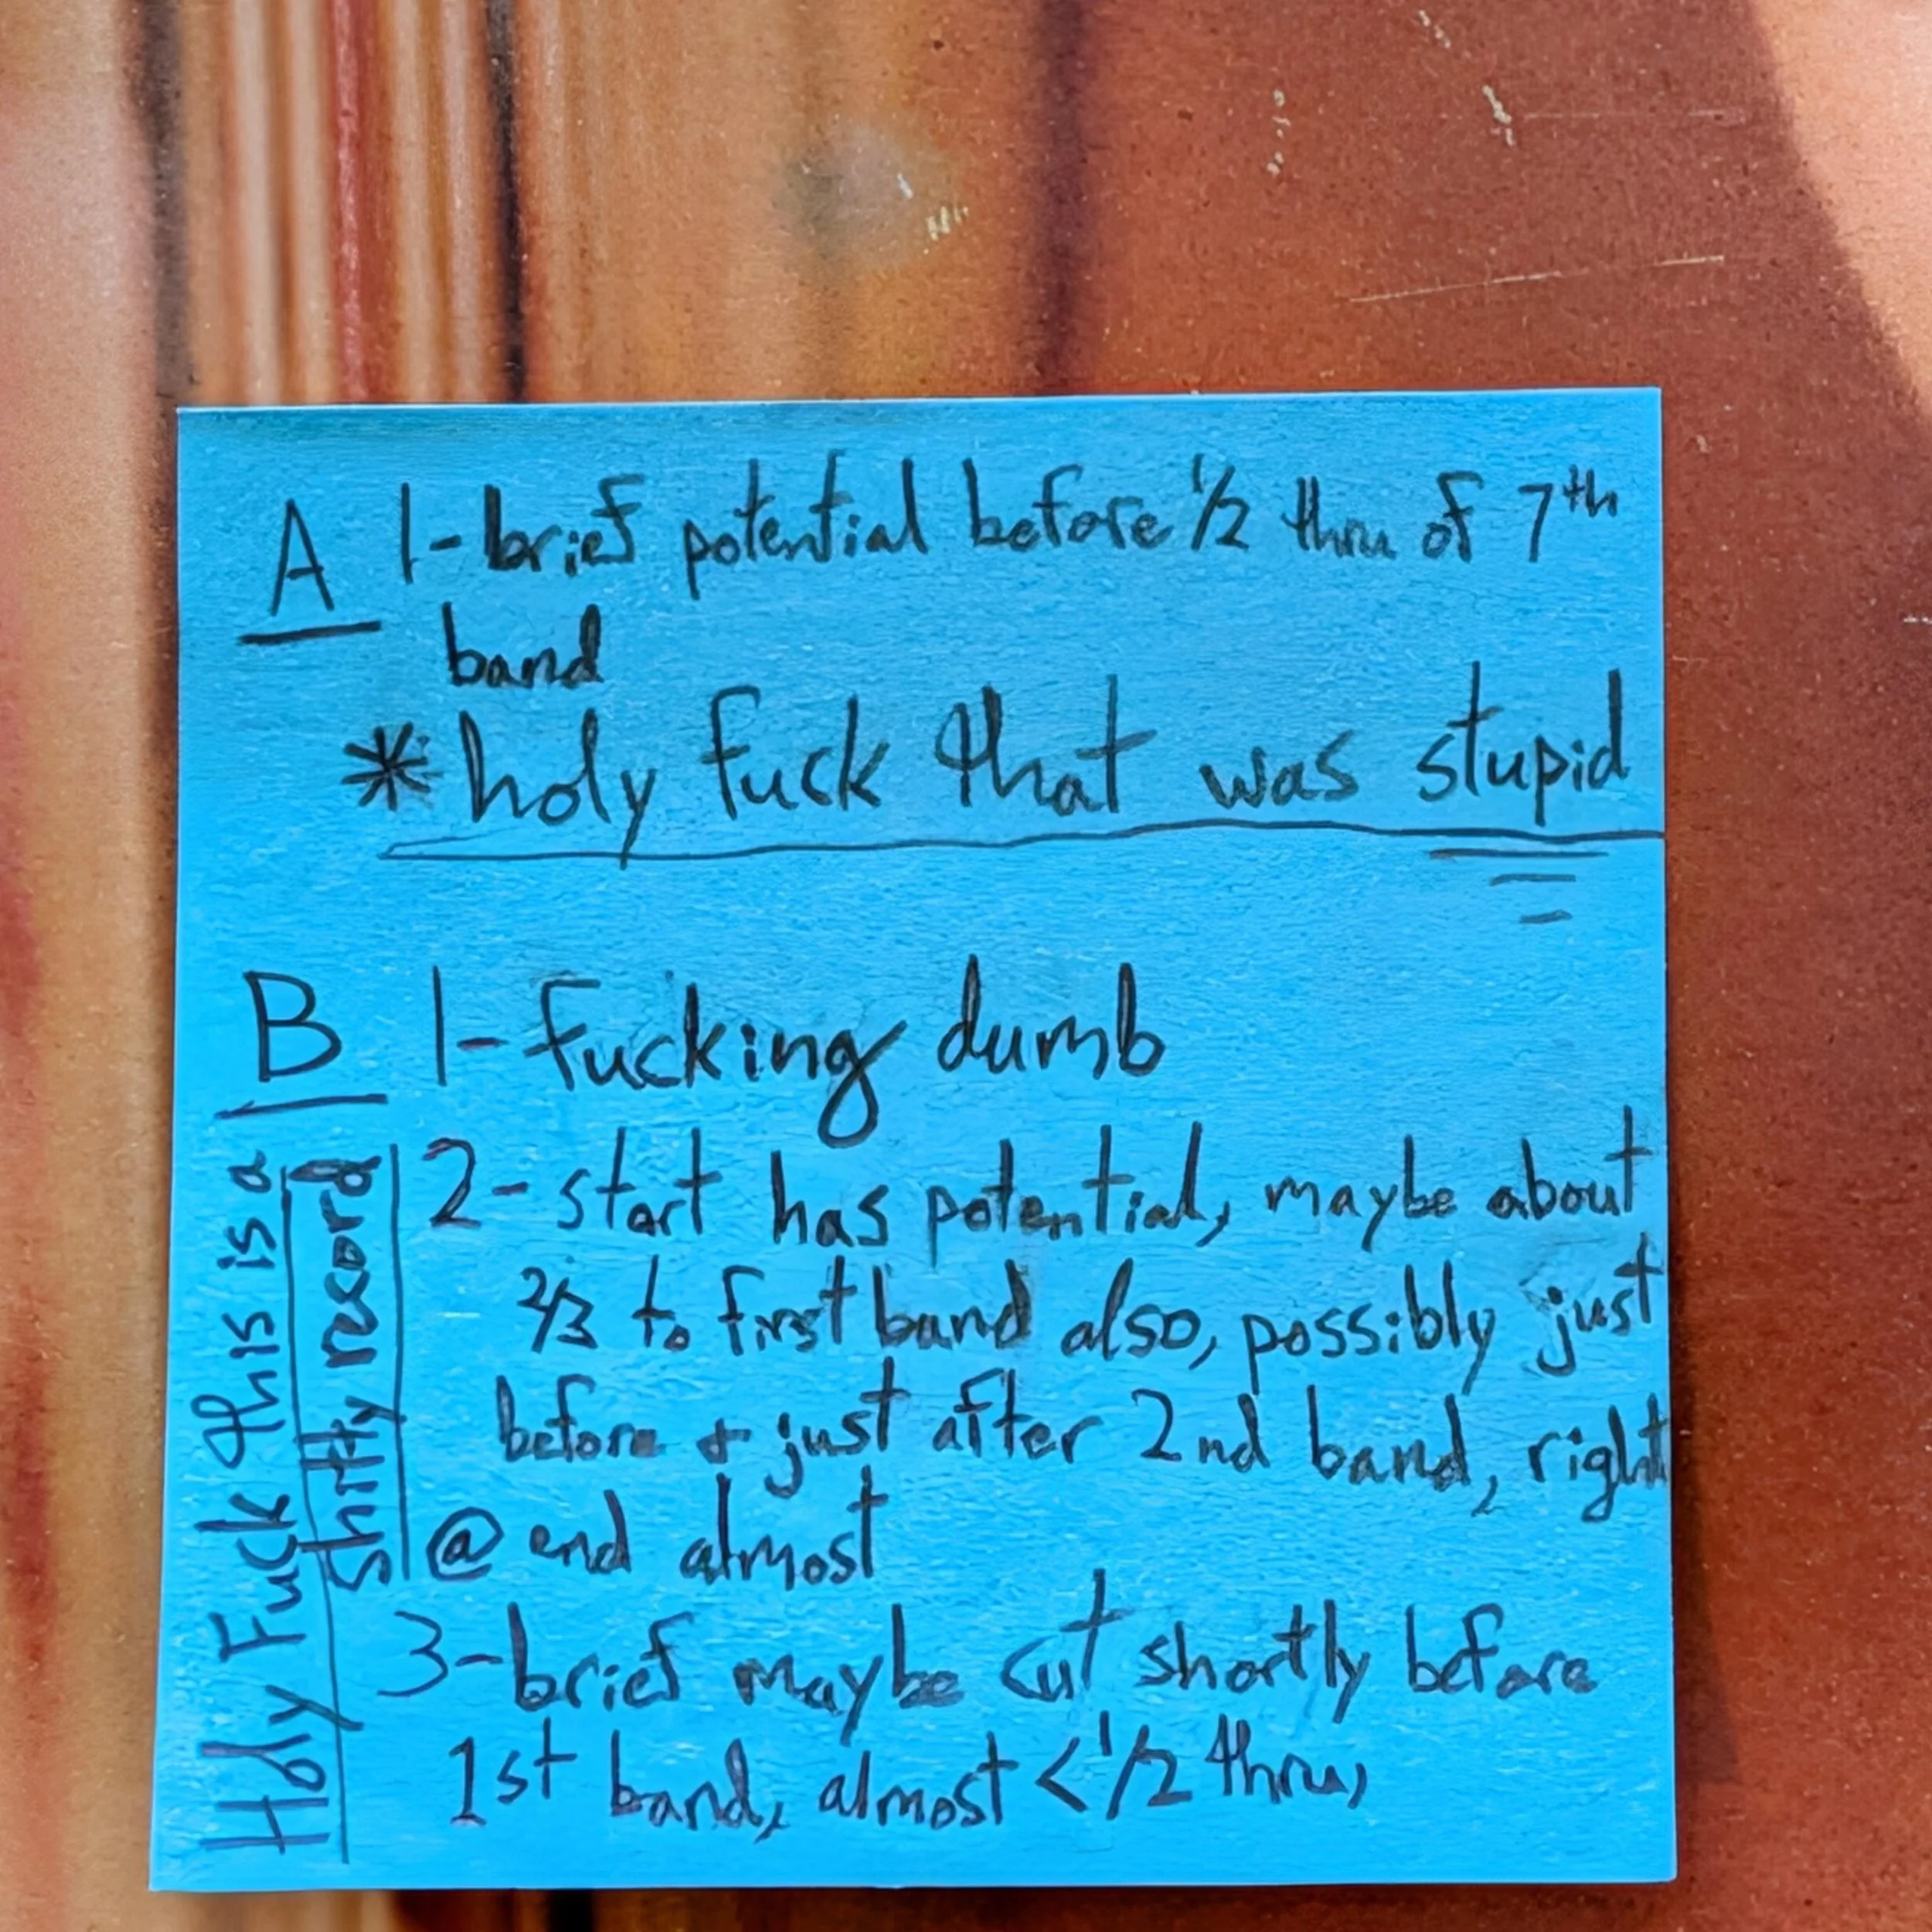 A 1-brief potential before 1/2 thru of 7th
band
*holy fuck that was stupid
B 1-fucking dumb
2-start has potential, maybe about
2/3 to first band also, possibly just
before + just after 2nd band, right
@ end almost
3-brief maybe cut shortly before
1st band, almost <1/2 thru,
Holy Fuck this is a
shitty record